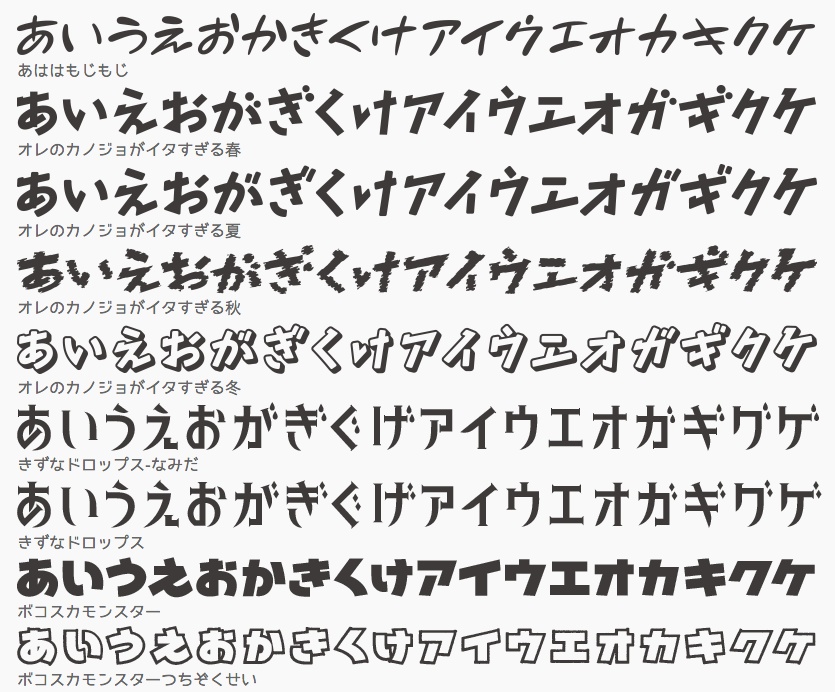 あいうえおかきくけアイウエオカキクケ
あははもじもじ
あいえおがぎくけアイウエオガギクケ
オレのカノジョがイタすぎる春
あいえおがぎくけアイウエオガギクケ
オレのカノジョがイタすぎる夏
あいえおがぎくけアイウエオガギクケ
オレのカノジョがイタすぎる秋
あいえおがぎくけアイウエオガギクケ
オレのカノジョがイタすぎる冬
あいうえおがぎぐげアイウエオガギグゲ
きずなドロップス-なみだ
あいうえおがぎぐげアイウエオガギグゲ
きずなドロップス
あいうえおかきくけアイウエオカキクケ
ボコスカモンスター
あいうえおかきくけアイウエオカキクケ
ボコスカモンスターつちぞくせい